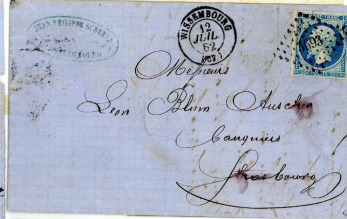 JEAN PHILIPPE
WISSEMBOURG
12
JUIL.
62
(67)
Messieurs
Leon Blum Auscher
Banquiers
Strasbourg